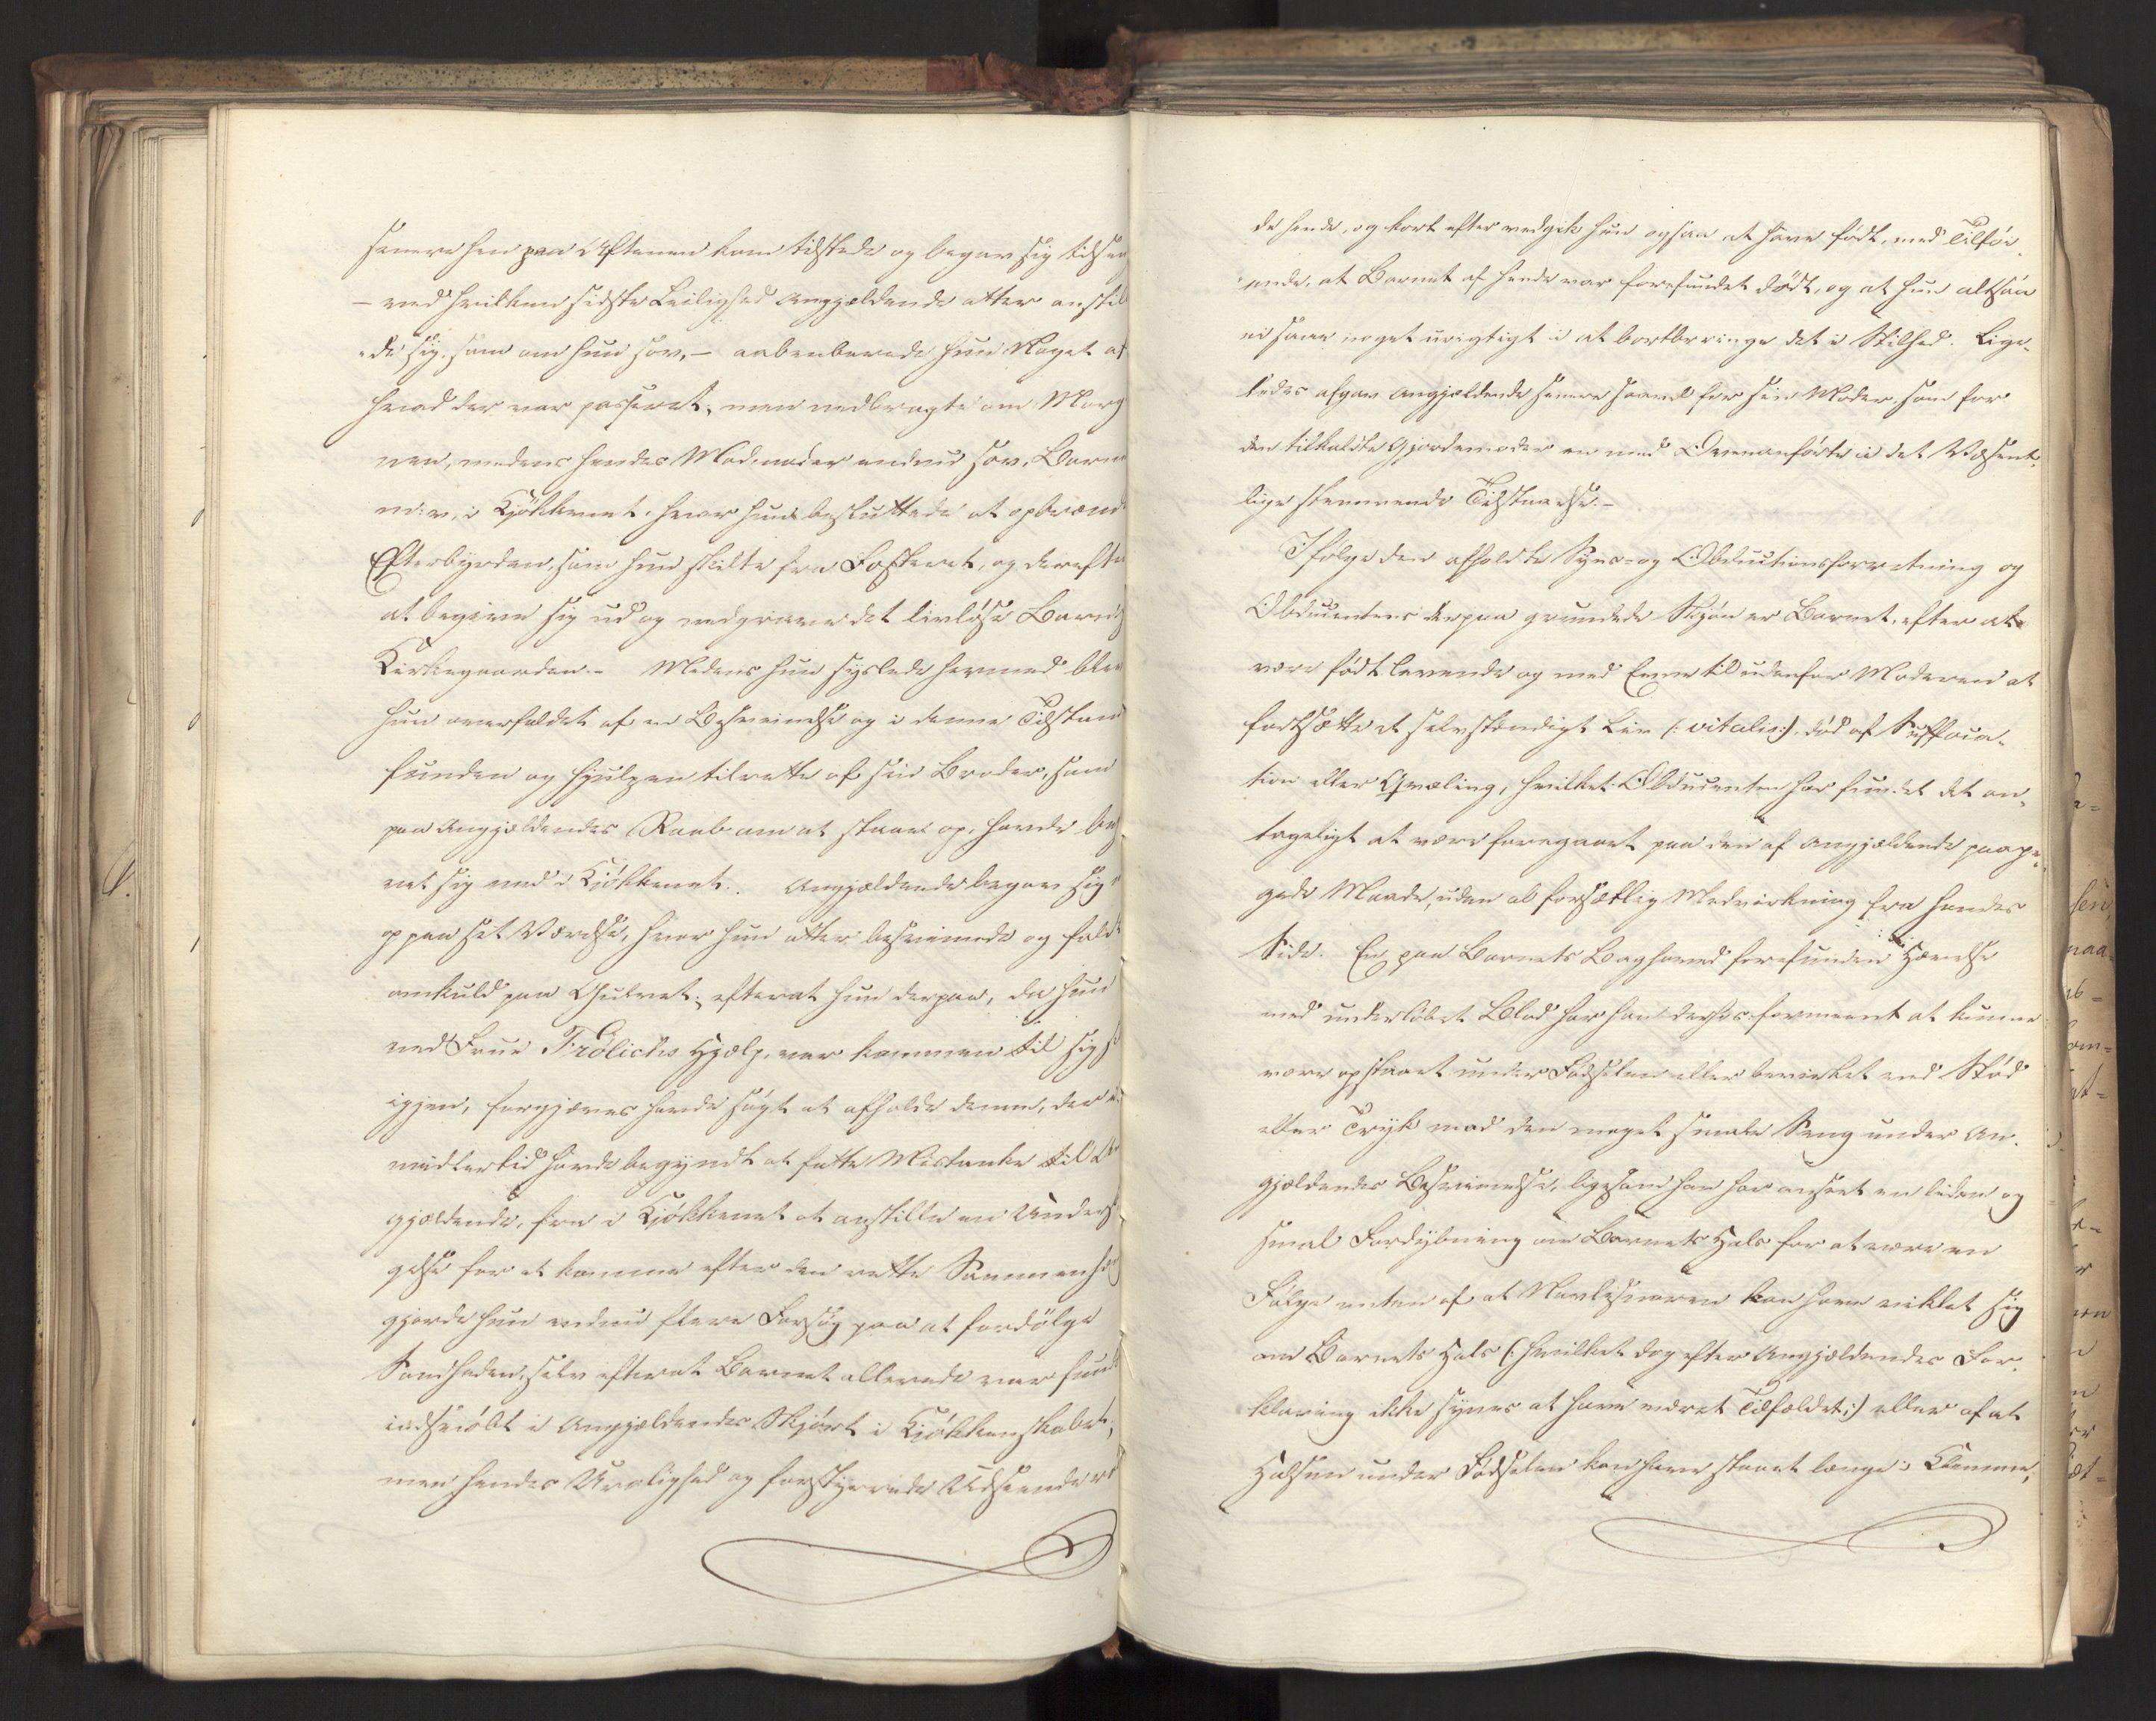 senere hen paa Aftenen kom tilstede og begav sig tilsen
– ved hvilken sidste Leilighed Angjældende atter anstil
-de sig, som om hun sov, – aabenbarede hun Noget af
hvad der var passeret, men nedbragte om Morg
nen, medens hendes Madmoder endnu sov, Barn
ned i Kjøkkenet, hvor hun besluttede at opbrænd
Efterbyrden, som hun skilte fra Fosteret, og derefte
at begive sig ud og nedgrave det livløse Barn
Kirkegaarden. – Medens hun syslede hermed blev
hun overfaldet af en Besvimelse og i denne Tilstand
funden og hjulpen tilrette af sin Broder, som
paa Angjældendes Raab om at staae op, havde beg
vet sig ned i Kjøkkenet. Angjældende begav sig
op paa sit Værelse, hvor hun atter besvimede og faldt
omkuld paa Gulvet; efterat hun derpaa, da hun
ved Frue Frølichs Hjælp, var kommen til sig s
igjen, forgjæves havde søgt at afholde denne, der i
midlertid havde begyndt at fatte Mistanke til An
gjældende, fra i Kjøkkenet at anstille en Undersø
gelse for at komme efter den rette Sammenhæng
gjorde hun endnu flere Forsøg paa at fordølge
Sandheden, selv efterat Barnet allerede var fund
indsvøbt i Angjældendes Skjørt i Kjøkkenskabet,
men hendes Urolighed og forstyrrede Udseende r
de hende, og kort efter vedgik hun ogsaa at have født, med Tilføi-
ende, at Barnet af hende var forefundet dødt, og at hun altsaa
ei saae noget urigtigt i at bortbringe det i Stilhed. Lige-
ledes afgav Angjældende senere saavel for sin Moder, som for
den tilkaldte Gjordemoder en med Ovenanførte i det Væsent-
lige stemmende Tilstaaelse. –
Ifølge den afholdte Syns- og Obductionsforretning og
Obducentens derpaa grundede Skjøn er Barnet, efter at
være født levende og med Evne til udenfor Moderen at
fortsætte et selvstændigt Liv (: vitalis:), død af Suffoca-
tion eller Qvæling, hvilket Obducenten har fundet det an-
tageligt at være foregaaet paa den af Angjældende paape-
gede Maade, uden al forsætlig Medvirkning fra hendes
Side. En paa Barnets Baghoved forefunden Hævelse
med underløbet Blod har han derhos formeent at kunne
være opstaaet under Fødselen eller bevirket ved Stød
eller Tryk mod den meget smale Seng under An-
gjældendes Besvimelse, ligesom han har anseet en liden og
smal Fordybning om Barnets Hals for at være en
Følge enten af at Navlesnoren kan have viklet sig
om Barnets Hals (: hvilket dog efter Angjældendes For-
klaring ikke synes at have været Tilfældet:) eller af at
Halsen under Fødselen kan have staaet længe i Klemme,